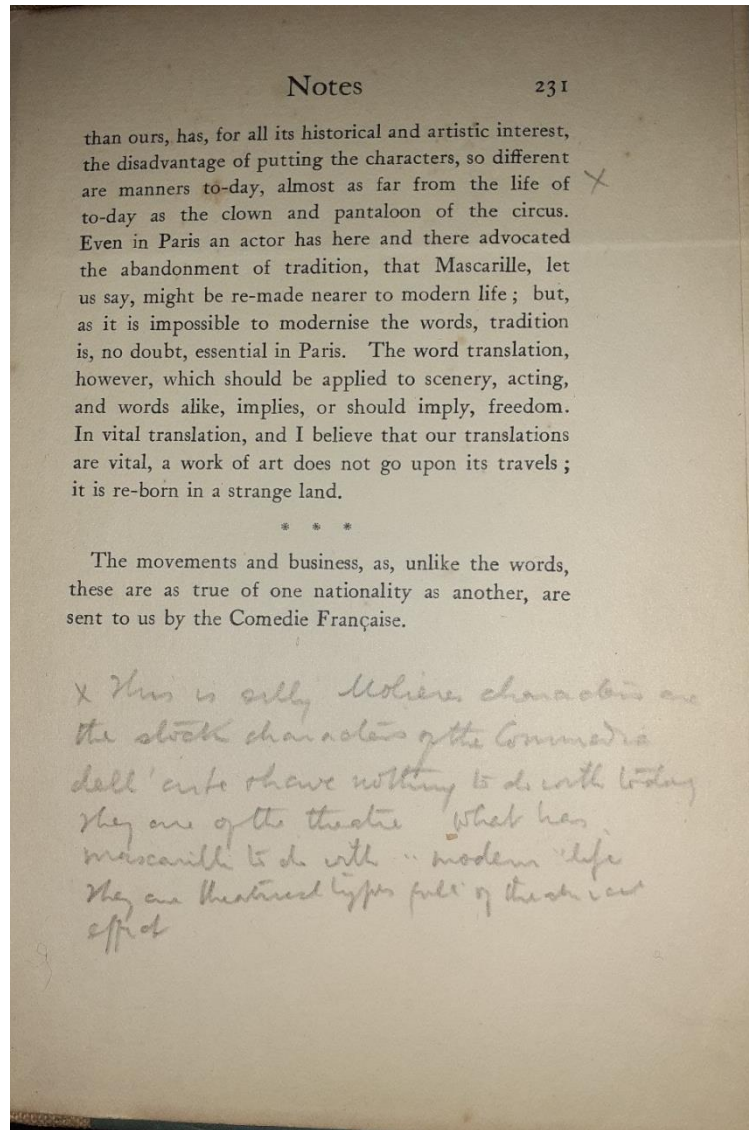 Notes 231
than ours, has, for all its historical and artistic interest,
the disadvantage of putting the characters, so different
are manners to-day, almost as far from the life of X
to-day as the clown and pantaloon of the circus.
Even in Paris an actor has here and there advocated
the abandonment of tradition, that Mascarille, let
us say, might be re-made nearer to modern life ; but,
as it is impossible to modernise the words, tradition
is, no doubt, essential in Paris. The word translation,
however, which should be applied to scenery, acting,
and words alike, implies, or should imply, freedom.
In vital translation, and I believe that our translations
are vital, a work of art does not go upon its travels ;
it is re-born in a strange land.
* * *
The movements and business, as, unlike the words,
these are as true of one nationality as another, are
sent to us by the Comedie Française.
X This is silly Molieres characters are
the stock characters of the Commedia
dell'arte & have nothing to do with today
They are of the theatre What has
mascarille to do with "modern" life
They are theatrical types full of theatrical
effect